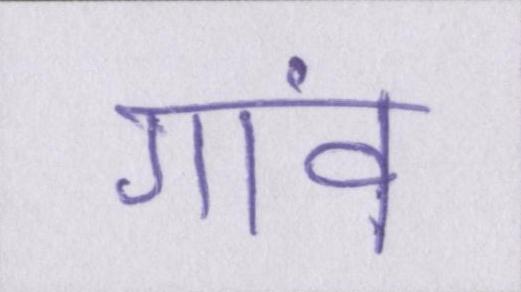 गांव